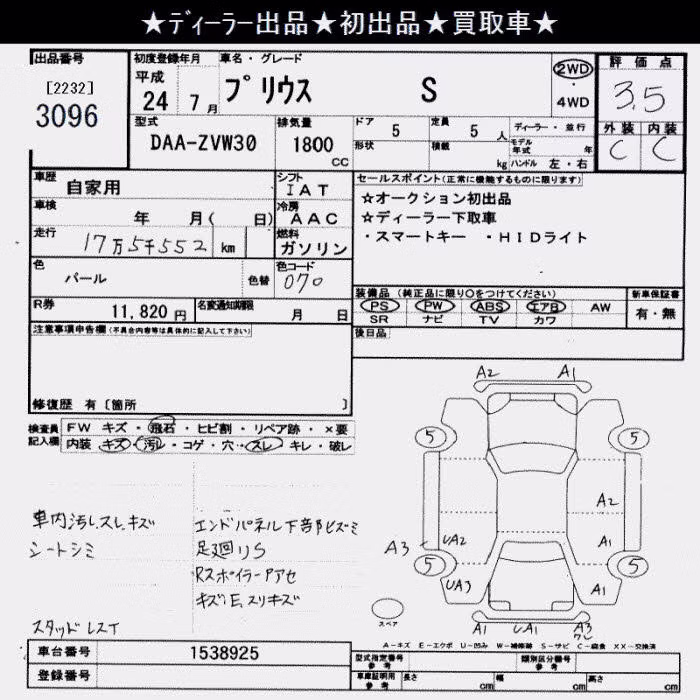 ★ディーラー出品★初出品★買取車★
出品番号
[2232]
3096
初度登録年月
平成
24 7月
車名・グレード
プリウス S
2WD
・
4WD
評価点
3.5
外装 内装
C C
型式
DAA-ZVW30
排気量
1800
CC
ドア 5
形状
定員 5 人
積載 kg
ディーラー・並行
モデル年式 年
ハンドル 左・右
車歴 自家用
シフト
IAT
車検 年 月( 日)
冷房
AAC
走行 17万5千552 km
燃料
ガソリン
色 パール 色替
色コード
070
R券 11,820 円
名変通知期限 月 日
セールスポイント(正常に機能するものに限ります)
☆オークション初出品
☆ディーラー下取車
・スマートキー ・HIDライト
装備品 (純正品に限り○をつけてください)
PS PW ABS エアB AW
SR ナビ TV カワ
新車保証書
有・無
後日品
注意事項申告欄(不具合内容等は具体的に記入して下さい)
修復歴 有〔箇所 〕
検査員記入欄
FW キズ・飛石・ヒビ割・リペア跡・×要
内装 キズ・汚レ・コゲ・穴・スレ・キレ・破レ
車内汚レスレキズ
シートシミ
スタッドレスT
エンドパネル下部ヒズミ
足廻リS
Rスポイラーアアセ
キズE、スリキズ
A2 A1
5 5
A2
UA2 A1
A3
5 5
UA3 A1
A1 UA1 A3
ワレ
スペア
A-キズ E-エクボ U-凹み W-補修跡 S-サビ C-腐食 XX-交換済
車台番号 1538925
登録番号
型式指定番号 参考
類別区分番号 参考
車庫証明用 参考 長さ cm 幅 cm 高さ cm